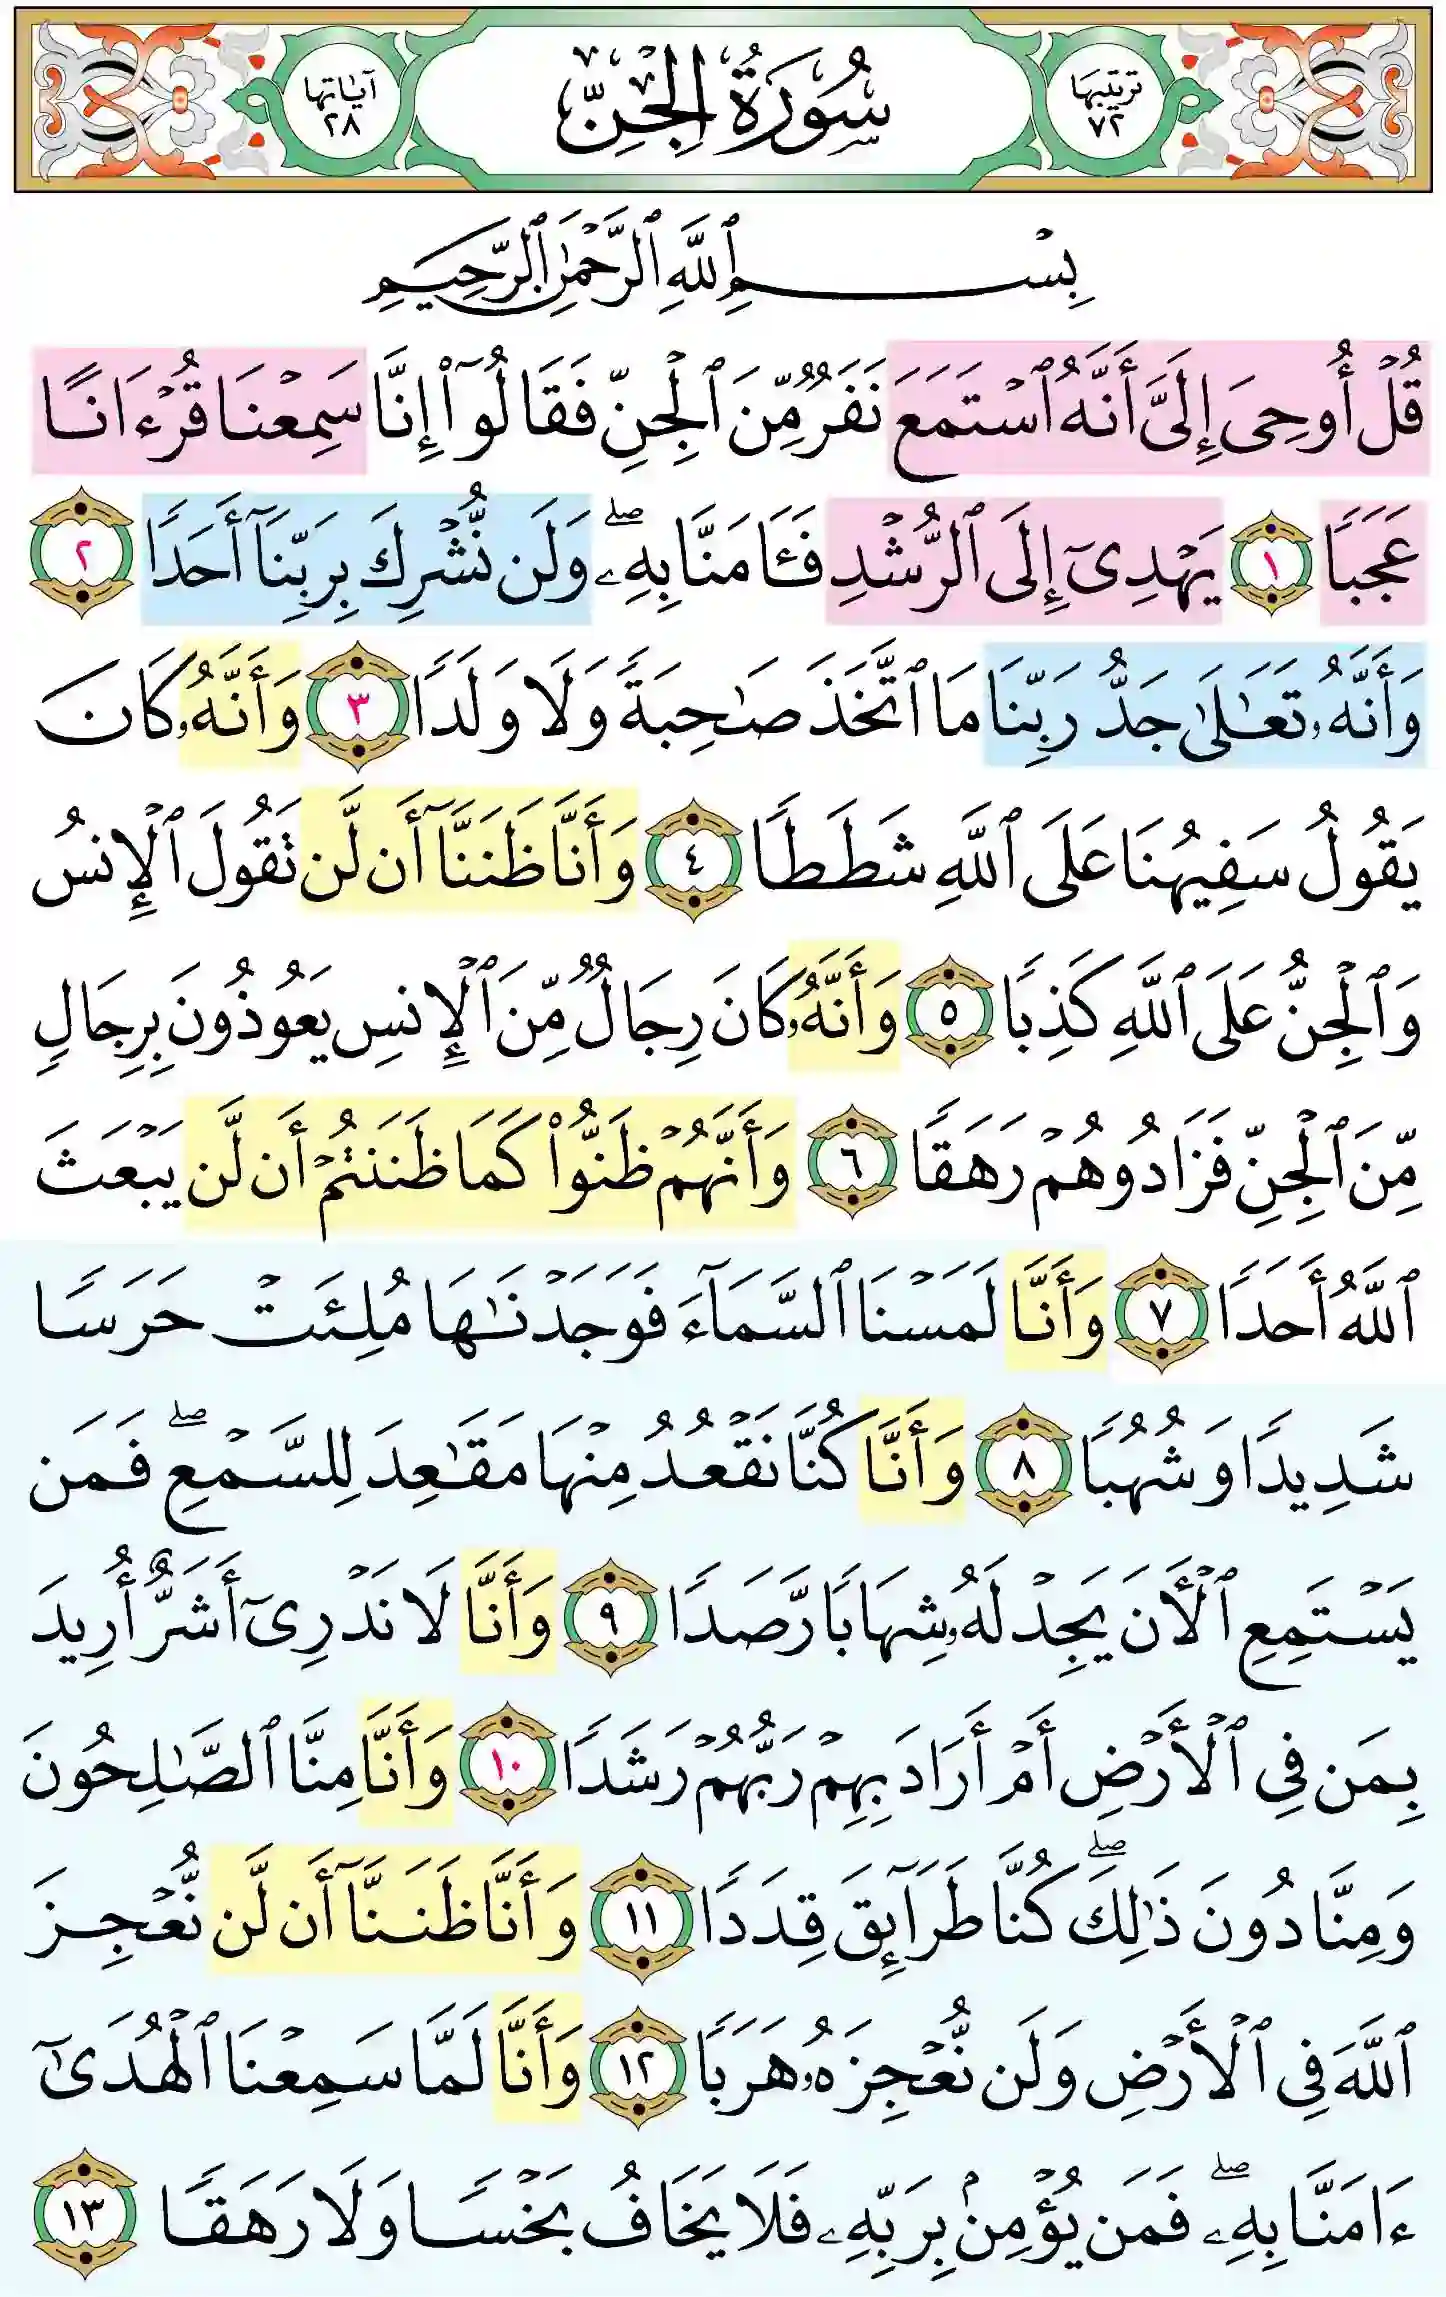 ترتيبها ٧٢
سُورَةُ الجِنِّ
آياتها ٢٨
بِسْمِ ٱللَّهِ ٱلرَّحْمَٰنِ ٱلرَّحِيمِ
قُلْ أُوحِىَ إِلَىَّ أَنَّهُ ٱسْتَمَعَ نَفَرٌ مِّنَ ٱلْجِنِّ فَقَالُوٓا۟ إِنَّا سَمِعْنَا قُرْءَانًا
عَجَبًا ١ يَهْدِىٓ إِلَى ٱلرُّشْدِ فَـَٔامَنَّا بِهِۦ ۖ وَلَن نُّشْرِكَ بِرَبِّنَآ أَحَدًا ٢
وَأَنَّهُۥ تَعَٰلَىٰ جَدُّ رَبِّنَا مَا ٱتَّخَذَ صَٰحِبَةً وَلَا وَلَدًا ٣ وَأَنَّهُۥ كَانَ
يَقُولُ سَفِيهُنَا عَلَى ٱللَّهِ شَطَطًا ٤ وَأَنَّا ظَنَنَّآ أَن لَّن تَقُولَ ٱلْإِنسُ
وَٱلْجِنُّ عَلَى ٱللَّهِ كَذِبًا ٥ وَأَنَّهُۥ كَانَ رِجَالٌ مِّنَ ٱلْإِنسِ يَعُوذُونَ بِرِجَالٍ
مِّنَ ٱلْجِنِّ فَزَادُوهُمْ رَهَقًا ٦ وَأَنَّهُمْ ظَنُّوا۟ كَمَا ظَنَنتُمْ أَن لَّن يَبْعَثَ
ٱللَّهُ أَحَدًا ٧ وَأَنَّا لَمَسْنَا ٱلسَّمَآءَ فَوَجَدْنَٰهَا مُلِئَتْ حَرَسًا
شَدِيدًا وَشُهُبًا ٨ وَأَنَّا كُنَّا نَقْعُدُ مِنْهَا مَقَٰعِدَ لِلسَّمْعِ ۖ فَمَن
يَسْتَمِعِ ٱلْـَٔانَ يَجِدْ لَهُۥ شِهَابًا رَّصَدًا ٩ وَأَنَّا لَا نَدْرِىٓ أَشَرٌّ أُرِيدَ
بِمَن فِى ٱلْأَرْضِ أَمْ أَرَادَ بِهِمْ رَبُّهُمْ رَشَدًا ١٠ وَأَنَّا مِنَّا ٱلصَّٰلِحُونَ
وَمِنَّا دُونَ ذَٰلِكَ ۖ كُنَّا طَرَآئِقَ قِدَدًا ١١ وَأَنَّا ظَنَنَّآ أَن لَّن نُّعْجِزَ
ٱللَّهَ فِى ٱلْأَرْضِ وَلَن نُّعْجِزَهُۥ هَرَبًا ١٢ وَأَنَّا لَمَّا سَمِعْنَا ٱلْهُدَىٰٓ
ءَامَنَّا بِهِۦ ۖ فَمَن يُؤْمِنۢ بِرَبِّهِۦ فَلَا يَخَافُ بَخْسًا وَلَا رَهَقًا ١٣